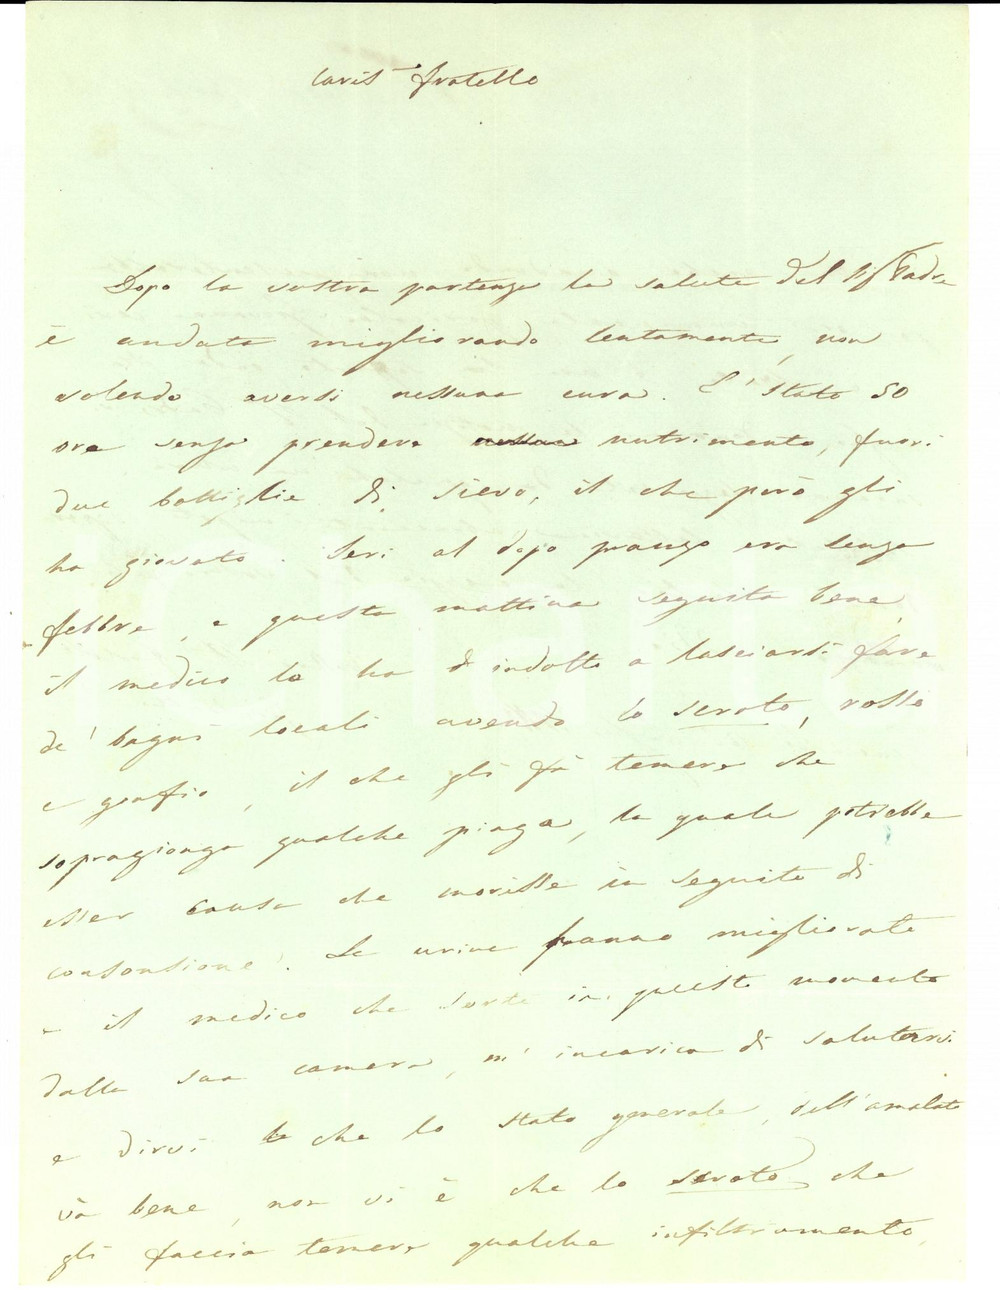 Caris.º fratello
Dopo la vostra partenza la salute del Sig Padre
è andata migliorando lentamente, non
volendo aversi nessuna cura. E' stato 50
ore senza prendere nutrimento, fuori
due bottiglie di siero, il che però gli
ha giovato. Ieri al dopo pranzo era senza
febbre, e questa mattina seguita bene,
il medico lo ha indotto a lasciarsi fare
de' bagni locali avendo lo scroto, rosso
e gonfio, il che gli fà temere che
sopragionga qualche piaga, la quale potrebbe
esser causa che morisse in seguito di
consonsione. Le urine hanno migliorato
e il medico che sorte in questo momento
dalla sua camera, m'incarica di salutarvi
e dirvi che lo stato generale, dell'amalato
và bene, non vi è che lo scroto che
gli faccia temere qualche infiltramento,